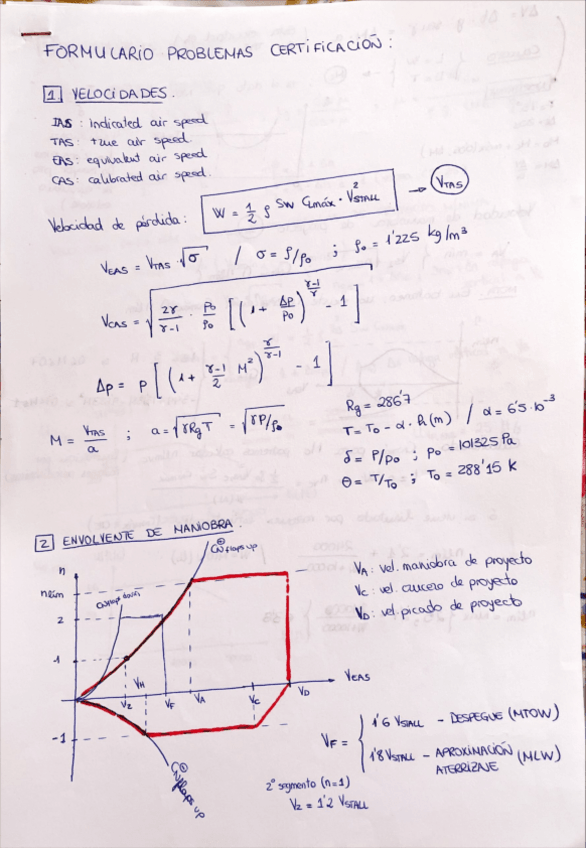 FORMULARIO PROBLEMAS CERTIFICACIÓN:
1 VELOCIDADES.
IAS: Indicated air speed
TAS: true air speed
EAS: equivalent air speed
CAS: calibrated air speed.
Velocidad de pérdida: W = 1/2 ρ Sw CLmáx · V²STALL → VTAS
VEAS = VTAS √σ / σ = ρ/ρ₀ ; ρ₀ = 1'225 kg/m³
VCAS = √(2γ/(γ-1) · P₀/ρ₀ [(1 + Δp/P₀)^((γ-1)/γ) - 1])
Δp = P [(1 + (γ-1)/2 M²)^(γ/(γ-1)) - 1]
M = VTAS/a ; a = √(γRgT) = √(γP/ρ₀)
Rg = 286'7
T = T₀ - α · h(m) / α = 6'5 · 10⁻³
δ = P/P₀ ; P₀ = 101325 Pa
θ = T/T₀ ; T₀ = 288'15 K
2 ENVOLVENTE DE MANIOBRA.
n
nlím
2
1
-1
CN⊕ flaps up
VH
V2
VF
VA
VC
VD
VEAS
CN⊖ flaps up
VA: vel. maniobra de proyecto
VC: vel. crucero de proyecto
VD: vel. picado de proyecto
VF = { 1'6 VSTALL - DESPEGUE (MTOW)
1'8 VSTALL - APROXIMACIÓN ATERRIZAJE (MLW)
2º segmento (n=1)
V2 = 1'2 VSTALL